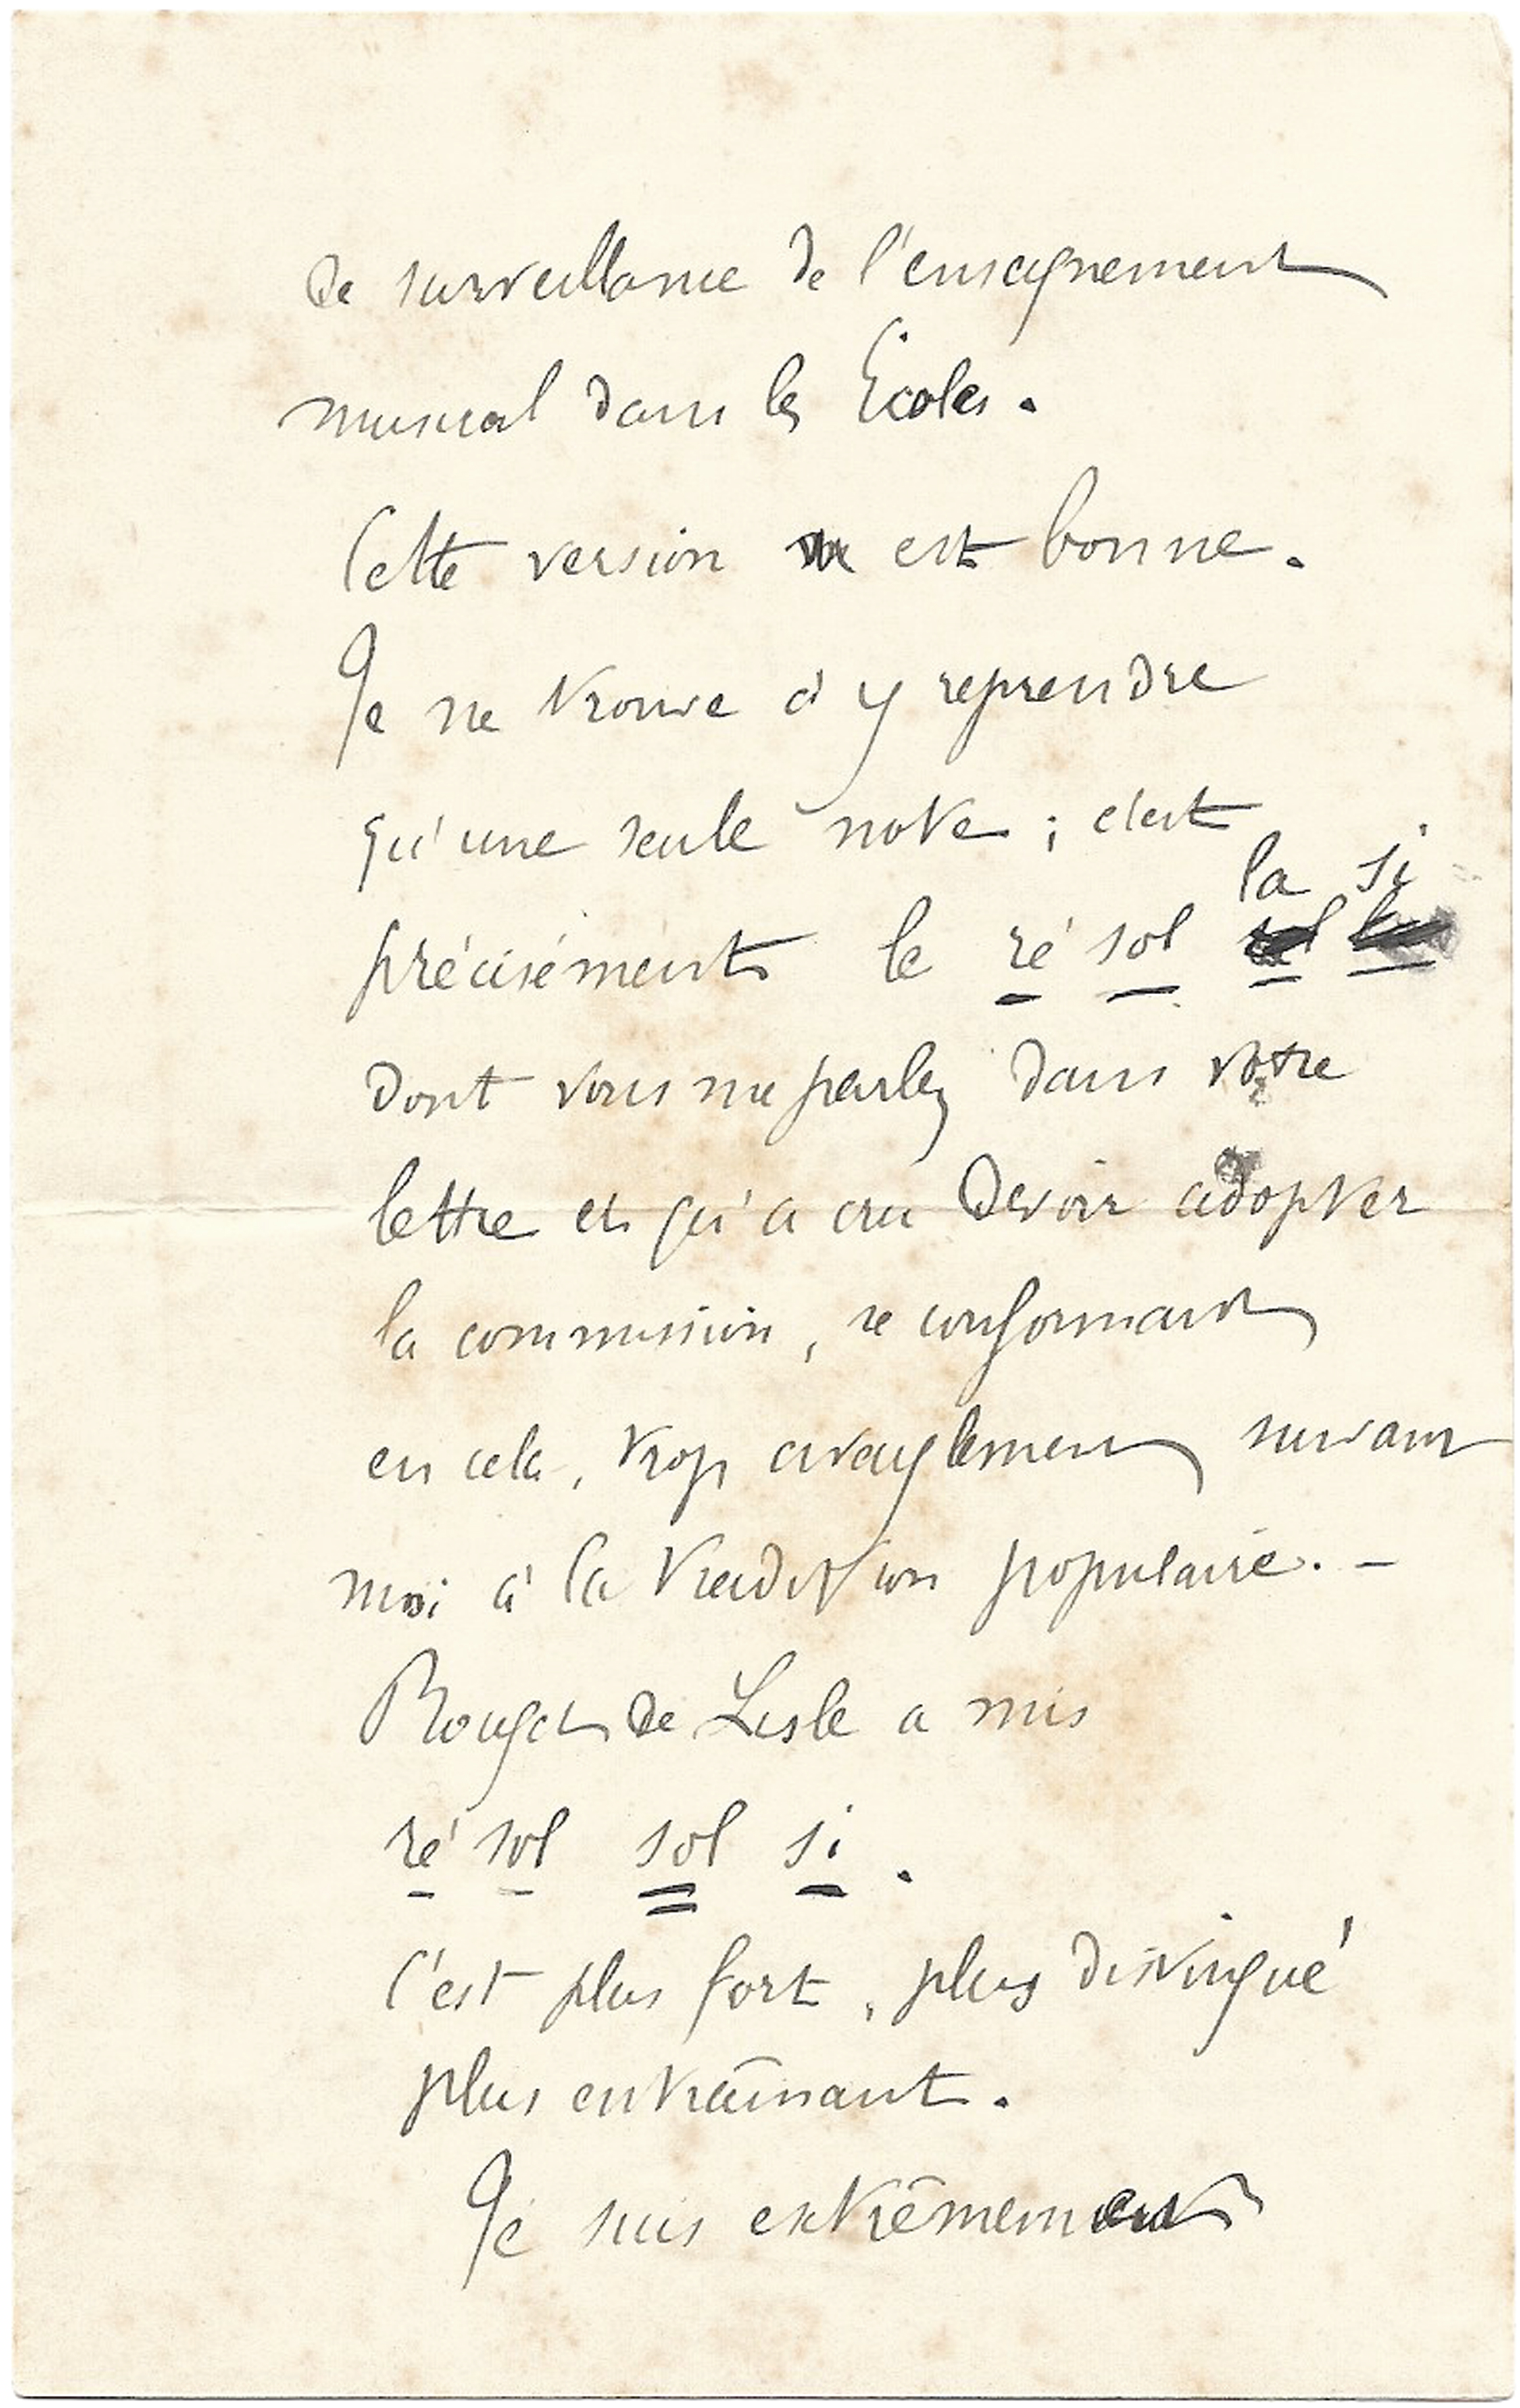 de surveillance de l'enseignement
musical dans les Écoles.
Cette version est bonne.
Je ne trouve à y reprendre
qu'une seule note ; c'est
la si
précisément le ré sol
dont vous me parlez dans votre
lettre et qu'a cru devoir adopter
la commission, se conformant
en cela, trop aveuglement suivant
moi à la tradition populaire. –
Rouget de Lisle a mis
ré sol sol si.
C'est plus fort, plus distingué
plus entraînant.
Je suis extrêmement